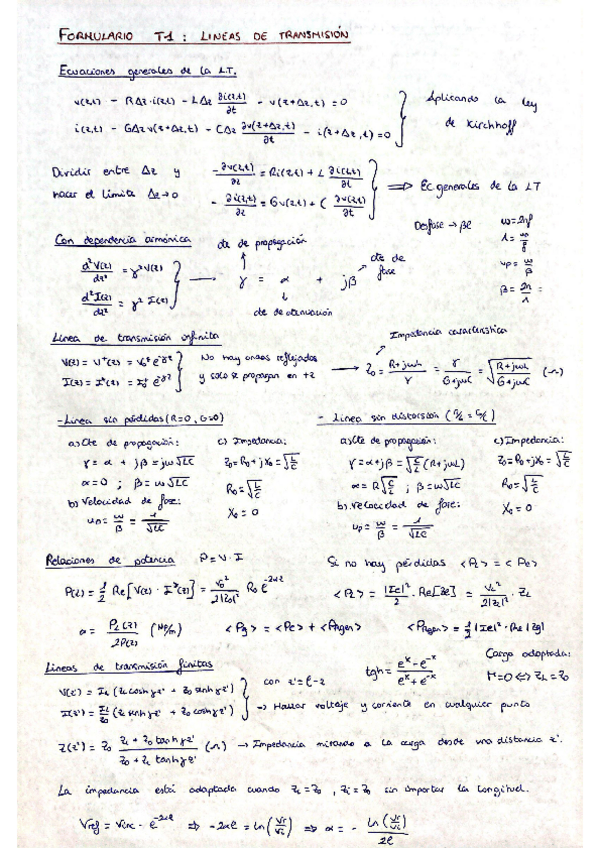 FORMULARIO T-1 : LINEAS DE TRANSMISIÓN
Ecuaciones generales de la L.T.
v(z,t) - RΔz·i(z,t) - LΔz ∂i(z,t)/∂t - v(z+Δz,t) = 0
i(z,t) - GΔz v(z+Δz,t) - CΔz ∂v(z+Δz,t)/∂t - i(z+Δz,t) = 0
Aplicando la ley de Kirchhoff
Dividir entre Δz y hacer el límite Δz→0
-∂v(z,t)/∂z = Ri(z,t) + L ∂i(z,t)/∂t
-∂i(z,t)/∂z = Gv(z,t) + C ∂v(z,t)/∂t
⇒ Ec. generales de la LT
Desfase → βl
ω=2πf
λ = up/f
up = ω/β
β = 2π/λ =
Con dependencia armónica
d²V(z)/dz² = γ² V(z)
d²I(z)/dz² = γ² I(z)
cte de propagación
γ = α + jβ
cte de fase
cte de atenuación
Línea de transmisión infinita
V(z) = V⁺(z) = V₀⁺ e^-γz
I(z) = I⁺(z) = I₀⁺ e^-γz
No hay ondas reflejadas
y solo se propagan en +z
Impedancia característica
Z₀ = (R+jωL)/γ = γ/(G+jωC) = √((R+jωL)/(G+jωC)) (Ω)
- Línea sin pérdidas (R=0, G=0)
a) Cte de propagación:
γ = α + jβ = jω√LC
α=0 ; β = ω√LC
b) Velocidad de fase:
up = ω/β = 1/√LC
c) Impedancia:
Z₀ = R₀ + jX₀ = √(L/C)
R₀ = √(L/C)
X₀ = 0
- Línea sin distorsión (R/L = G/C)
a) Cte de propagación:
γ = α+jβ = √(C/L) (R+jωL)
α = R√(C/L) ; β = ω√LC
b) Velocidad de fase:
up = ω/β = 1/√LC
c) Impedancia:
Z₀ = R₀ + jX₀ = √(L/C)
R₀ = √(L/C)
X₀ = 0
Relaciones de potencia P=V·I
P(z) = 1/2 Re[V(z)·I*(z)] = V₀²/2|Z₀|² R₀ e^-2αz
α = P_L(z)/2P(z) (Np/m)
<Pg> = <Pe> + <Pzgen>
Si no hay pérdidas <P_L> = <Pe>
<P_L> = |Ie|²/2 · Re[Ze] = V_L²/2|Z_L|² · Z_L
<Pzgen> = 1/2 |Ie|² · Re|Zg|
Líneas de transmisión finitas
V(z') = I_L (Z_L cosh γz' + Z₀ senh γz')
I(z') = I_L/Z₀ (Z_L senh γz' + Z₀ cosh γz')
con z' = l-z
→ Hallar voltaje y corriente en cualquier punto
tgh = (e^x - e^-x)/(e^x + e^-x)
Carga adaptada:
Γ=0 ⇔ Z_L = Z₀
Z(z') = Z₀ (Z_L + Z₀ tanh γz')/(Z₀ + Z_L tanh γz') (Ω) → Impedancia mirando a la carga desde una distancia z'.
La impedancia está adaptada cuando Z_L = Z₀ , Zi = Z₀ sin importar la longitud.
Vref = Vinc · e^-2αl ⇒ -2αl = ln(Vr/Vi) ⇒ α = - ln(Vr/Vi)/2l